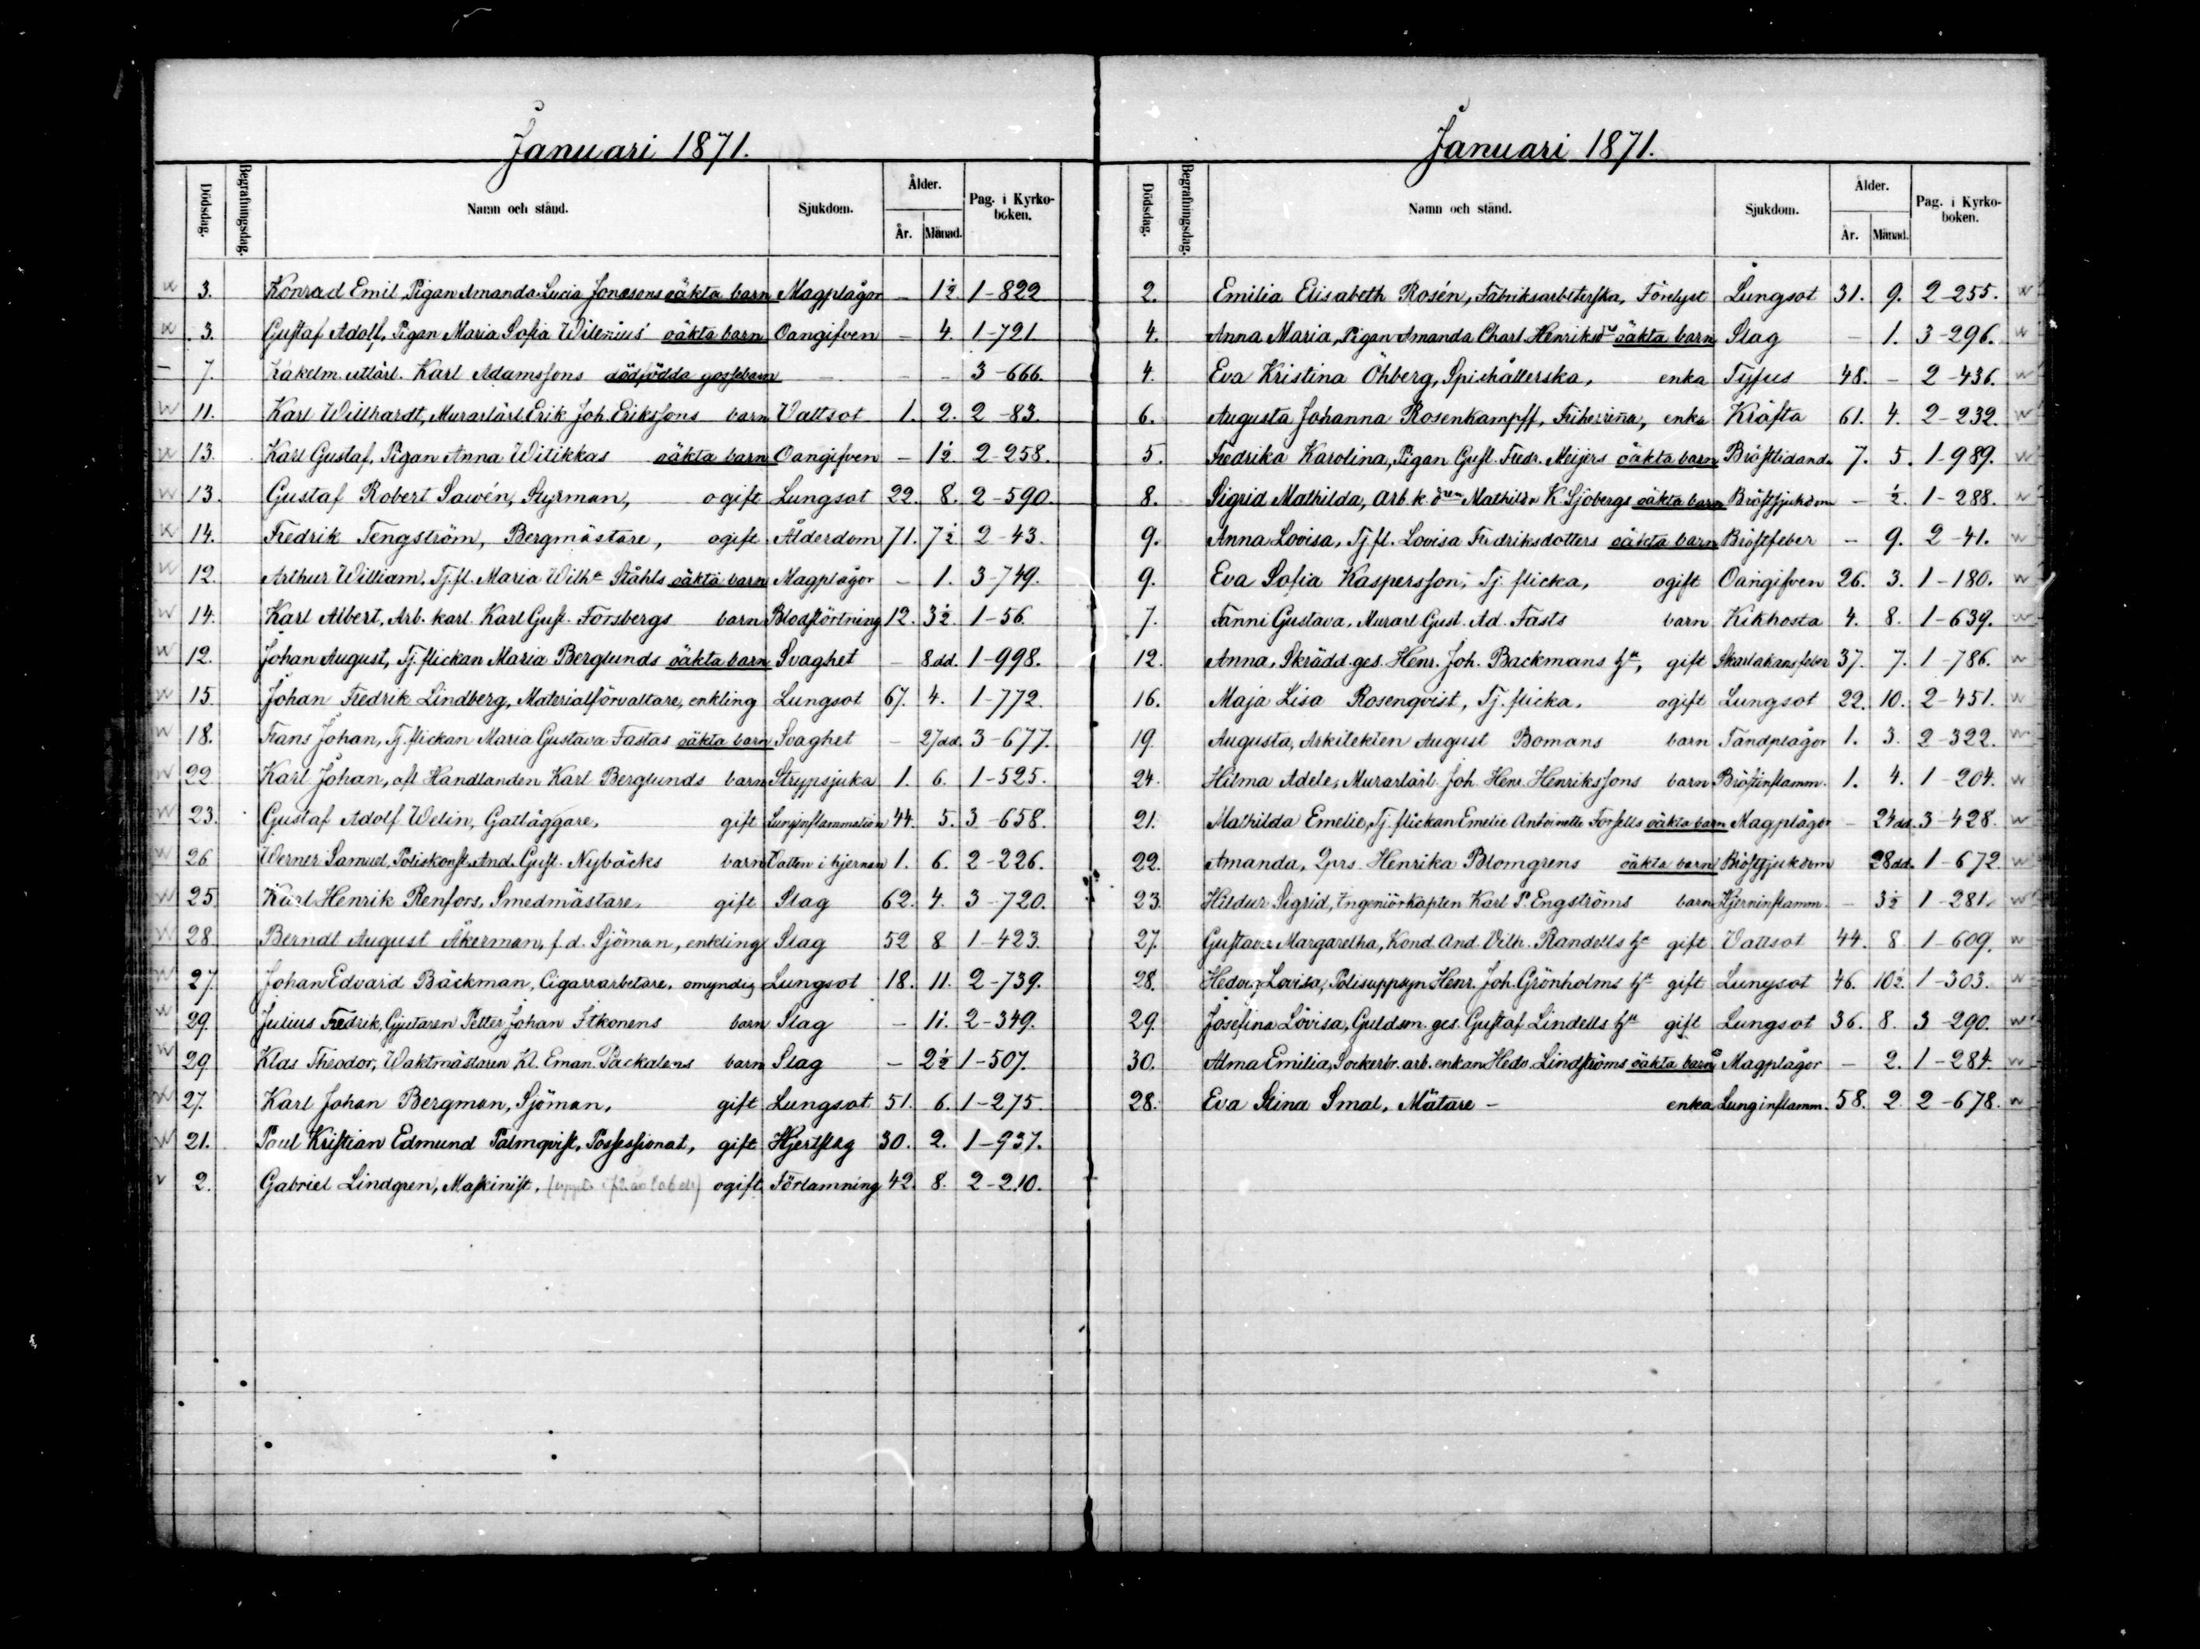 Januari 1871.
Dödsdag. Begrafningsdag. Namn och stånd. Sjukdom. Ålder. År. Månad. Pag. i Kyrkoboken.
3. Konrad Emil, Pigan Amanda Lucia Jonassons oäkta barn Magplågor – 1½ 1–822
3. Gustaf Adolf, Pigan Maria Sofia Wilenius' oäkta barn Oangifven – 4. 1–721
7. Kakelm. utlärl. Karl Adamssons dödfödda gossebarn — – – 3–666.
11. Karl Willhardt, Murarlärl. Erik Joh. Erikssons barn Vattsot 1. 2. 2–83.
13. Karl Gustaf, Pigan Anna Witikkas oäkta barn Oangifven – 1½ 2–258.
13. Gustaf Robert Sawén, Styrman, ogift Lungsot 22. 8. 2–590.
14. Fredrik Tengström, Bergmästare, ogift Ålderdom 71. 7½ 2–43.
12. Arthur William, Tj. fl. Maria Wilh. Ståhls oäkta barn Magplågor – 1. 3–749.
14. Karl Albert, Arb. karl. Karl Gust. Forsbergs barn Blodstörtning 12. 3½ 1–56
12. Johan August, Tj. flickan Maria Berglunds oäkta barn Svaghet – 8 dd. 1–998.
15. Johan Fredrik Lindberg, Materialförvaltare, enkling Lungsot 67. 4. 1–772.
18. Frans Johan, Tj. flickan Maria Gustava Fastas oäkta barn Svaghet – 27 dd. 3–677.
22. Karl Johan, afl. Handlanden Karl Berglunds barn Strypsjuka 1. 6. 1–525.
23. Gustaf Adolf Welin, Gatläggare, gift Lunginflammation 44. 5. 3–658.
26 Werner Samuel, Poliskonst. And. Gust. Nybäcks barn Vatten i hjernan 1. 6. 2–226.
25 Karl Henrik Renfors, Smedmästare, gift Slag 62. 4. 3–720.
28 Berndt August Åkerman, f.d. Sjöman, enkling Slag 52 8 1–423.
27. Johan Edvard Bäckman, Cigarrarbetare, omyndig Lungsot 18. 11. 2–739.
29. Julius Fredrik, Gjutaren Petter Johan Itkonens barn Slag – 11. 2–349.
29 Klas Theodor, Waktmästaren Kl. Eman. Packalens barn Slag – 2½ 1–507.
27. Karl Johan Bergman, Sjöman, gift Lungsot 51. 6. 1–275.
21. Paul Kristian Edmund Palmqvist, Possessionat, gift Hjertslag 30. 2. 1–937.
2. Gabriel Lindgren, Maskinist, ogift Förlamning 42. 8. 2–210.
Januari 1871.
Dödsdag. Begrafningsdag. Namn och stånd. Sjukdom. Ålder. År. Månad. Pag. i Kyrkoboken.
2. Emilia Elisabeth Rosén, Fabriksarbeterska, Förelyst Lungsot 31. 9. 2–255.
4. Anna Maria, Pigan Amanda Charl. Henriksdrs oäkta barn Slag – 1. 3–296.
4. Eva Kristina Öhberg, Spishållerska, enka Tyfus 48. – 2–436.
6. Augusta Johanna Rosenkampff, Friherrina, enka Kräfta 61. 4. 2–232.
5. Fredrika Karolina, Pigan Gust. Fredr. Meijers oäkta barn Bröstlidande 7. 5. 1–989.
8. Sigrid Mathilda, Arb. k. drn Mathilda K. Sjöbergs oäkta barn Bröstsjukdom – ½. 1–288.
9. Anna Lovisa, Tj. fl. Lovisa Fredriksdotters oäkta barn Bröstfeber – 9. 2–41.
9. Eva Sofia Kaspersson, Tj. flicka, ogift Oangifven 26. 3. 1–180.
7. Fanni Gustava, Murarl. Gust. Ad. Fasts barn Kikhosta 4. 8. 1–639.
12. Anna, Skrädd. ges. Henr. Joh. Backmans hu, gift Skarlakansfeber 37. 7. 1–786.
16. Maja Lisa Rosenqvist, Tj. flicka, ogift Lungsot 22. 10. 2–451.
19 Augusta, Arkitekten August Bomans barn Tandplågor 1. 3. 2–322.
24. Hilma Adele, Murarlärl. Joh. Henr. Henrikssons barn Bröstinflamm. 1. 4. 1–204.
21. Mathilda Emelie, Tj. flickan Emelie Antoinette Forsells oäkta barn Magplågor – 24 dd. 3–428.
22. Amanda, Henrika Blomgrens oäkta barn Bröstsjukdom 28 dd. 1–672
23. Hildur Sigrid, Ingeniörkapten Karl P. Engströms barn Hjerninflamm. – 3½ 1–281.
27. Gustava Margaretha, Kond. And. Vilh. Randells hu gift Vattsot 44. 8. 1–609.
28. Hedvig Lovisa, Polisuppsyn. Henr. Joh. Grönholms hu gift Lungsot 46. 10½. 1–303.
29. Josefina Lovisa, Guldsm. ges. Gustaf Lindells hu gift Lungsot 36. 8. 3–290.
30. Alma Emilia, Sockerbr. arb. enkan Hedv. Lindströms oäkta barn Magplågor – 2. 1–284.
28. Eva Stina Smal, Mätare – enka Lunginflamm. 58. 2. 2–678.